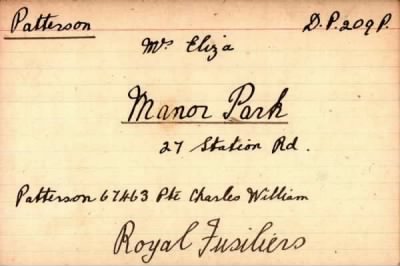 Patterson D.P.209P.
Mrs Eliza
Manor Park
27 Station Rd.
Patterson 67463 Pte Charles William
Royal Fusiliers